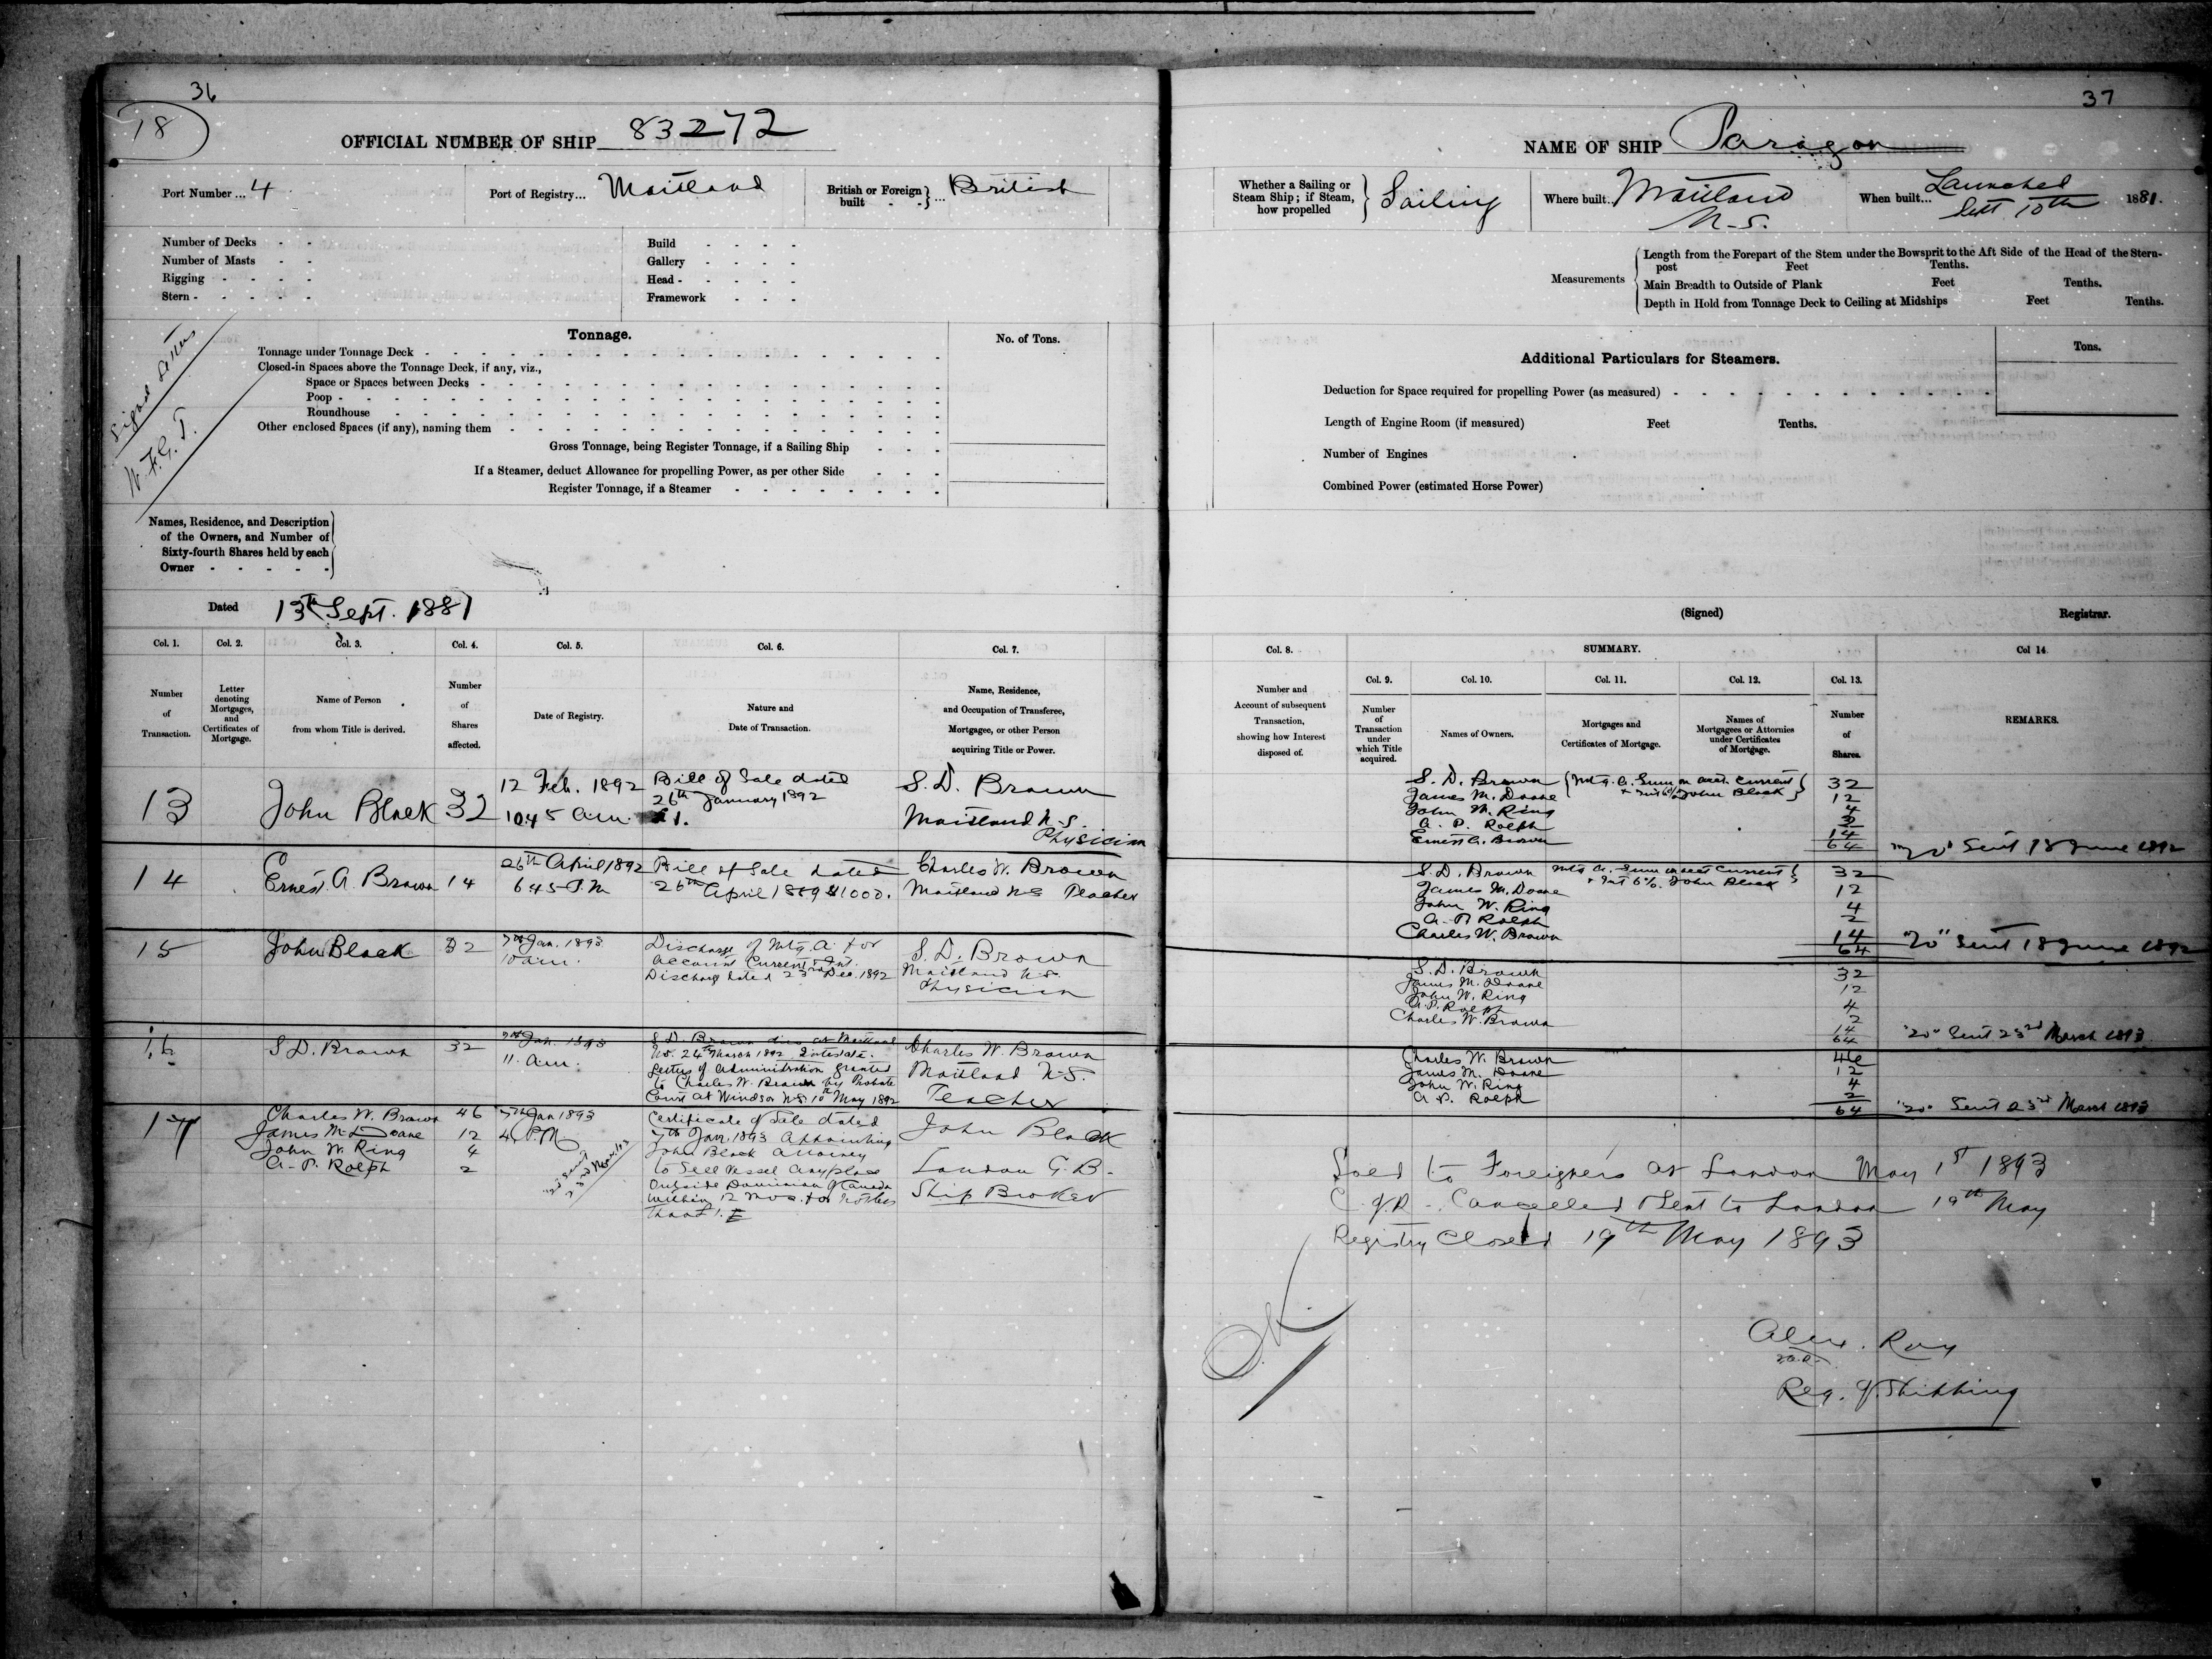 36
18
OFFICIAL NUMBER OF SHIP 83272
Port Number ... 4
Port of Registry... Maitland
British or Foreign built - - } ... British
Number of Decks - -
Number of Masts - -
Rigging - - - -
Stern - - - - -
Build - - - -
Gallery - - - -
Head - - - -
Framework - - -
Signal Letters
W.F.G.T.
Tonnage.
No. of Tons.
Tonnage under Tonnage Deck
Closed-in Spaces above the Tonnage Deck, if any, viz.,
Space or Spaces between Decks
Poop
Roundhouse
Other enclosed Spaces (if any), naming them
Gross Tonnage, being Register Tonnage, if a Sailing Ship
If a Steamer, deduct Allowance for propelling Power, as per other Side
Register Tonnage, if a Steamer
Names, Residence, and Description
of the Owners, and Number of
Sixty-fourth Shares held by each
Owner - - - - -
Dated 13th Sept. 1881
Col. 1.
Col. 2.
Col. 3.
Col. 4.
Col. 5.
Col. 6.
Col. 7.
Number
of
Transaction.
Letter
denoting
Mortgages,
and
Certificates of
Mortgage.
Name of Person
from whom Title is derived.
Number
of
Shares
affected.
Date of Registry.
Nature and
Date of Transaction.
Name, Residence,
and Occupation of Transferee,
Mortgagee, or other Person
acquiring Title or Power.
13
John Black
32
12 Feb. 1892
10.45 a.m.
Bill of Sale dated
26th January 1892
$1.
S. D. Brown
Maitland N.S.
Physician
14
Ernest A. Brown
14
26th April 1892
6 45 P.M
Bill of Sale dated
26th April $1000.
Charles W. Brown
Maitland NS Teacher
15
John Black
32
7th Jan. 1893
10 a.m.
Discharge of Mtg. A for
Account Current & Int.
Discharge dated 23rd Dec. 1892
S. D. Brown
Maitland N.S.
Physician
16
S D. Brown
32
7th Jan. 1893
11. a.m.
S. D. Brown died at Maitland
N.S. 24th March 1892 Intestate.
Letters of Administration granted
to Charles W. Brown by Probate
Court at Windsor N.S. 10 May 1892
Charles W. Brown
Maitland N.S.
Teacher
17
Charles W. Brown 46
James M. Doane 12
John W. Ring 4
A. P. Rolph 2
7th Jan 1893
4 P.M
Certificate of Sale dated
7th Jan. 1893 Appointing
John Black Attorney
to Sell Vessel any place
Outside Dominion of Canada
within 12 mos. for not less
than £1.
John Black
London G. B.
Ship Broker
37
NAME OF SHIP Paragon
Whether a Sailing or
Steam Ship; if Steam,
how propelled } Sailing
Where built.. Maitland
N.S.
When built... Launched
Sept 10th 1881.
Measurements
Length from the Forepart of the Stem under the Bowsprit to the Aft Side of the Head of the Stern-
post Feet Tenths.
Main Breadth to Outside of Plank Feet Tenths.
Depth in Hold from Tonnage Deck to Ceiling at Midships Feet Tenths.
Additional Particulars for Steamers.
Tons.
Deduction for Space required for propelling Power (as measured)
Length of Engine Room (if measured) Feet Tenths.
Number of Engines
Combined Power (estimated Horse Power)
(Signed) Registrar.
Col. 8.
SUMMARY.
Col 14.
Number and
Account of subsequent
Transaction,
showing how Interest
disposed of.
Col. 9.
Col. 10.
Col. 11.
Col. 12.
Col. 13.
Number
of
Transaction
under
which Title
acquired.
Names of Owners.
Mortgages and
Certificates of Mortgage.
Names of
Mortgagees or Attornies
under Certificates
of Mortgage.
Number
of
Shares.
REMARKS.
S. D. Brown { Mtg. A. Sum on acct. Current } 32
James M. Doane + Int 6% John Black 12
John W. Ring 4
A. P. Rolph 2
Ernest A. Brown 14
64
"20" Sent 18 June 1892
S. D. Brown Mtg A. Sum on acct Current } 32
James M. Doane + Int 6%. John Black 12
John W. Ring 4
A. P. Rolph 2
Charles W. Brown 14
64
"20" Sent 18 June 1892
S. D. Brown 32
James M. Doane 12
John W. Ring 4
A. P. Rolph 2
Charles W. Brown 14
64
"20" Sent 23rd March 1893
Charles W. Brown 46
James M. Doane 12
John W. Ring 4
A. P. Rolph 2
64
"20" Sent 23rd March 1893
Sold to Foreigners at London May 1st 1893
C. of R. Cancelled & Sent to London 19th May
Registry Closed 19th May 1893
OK
Alex. Roy
Reg. of Shipping